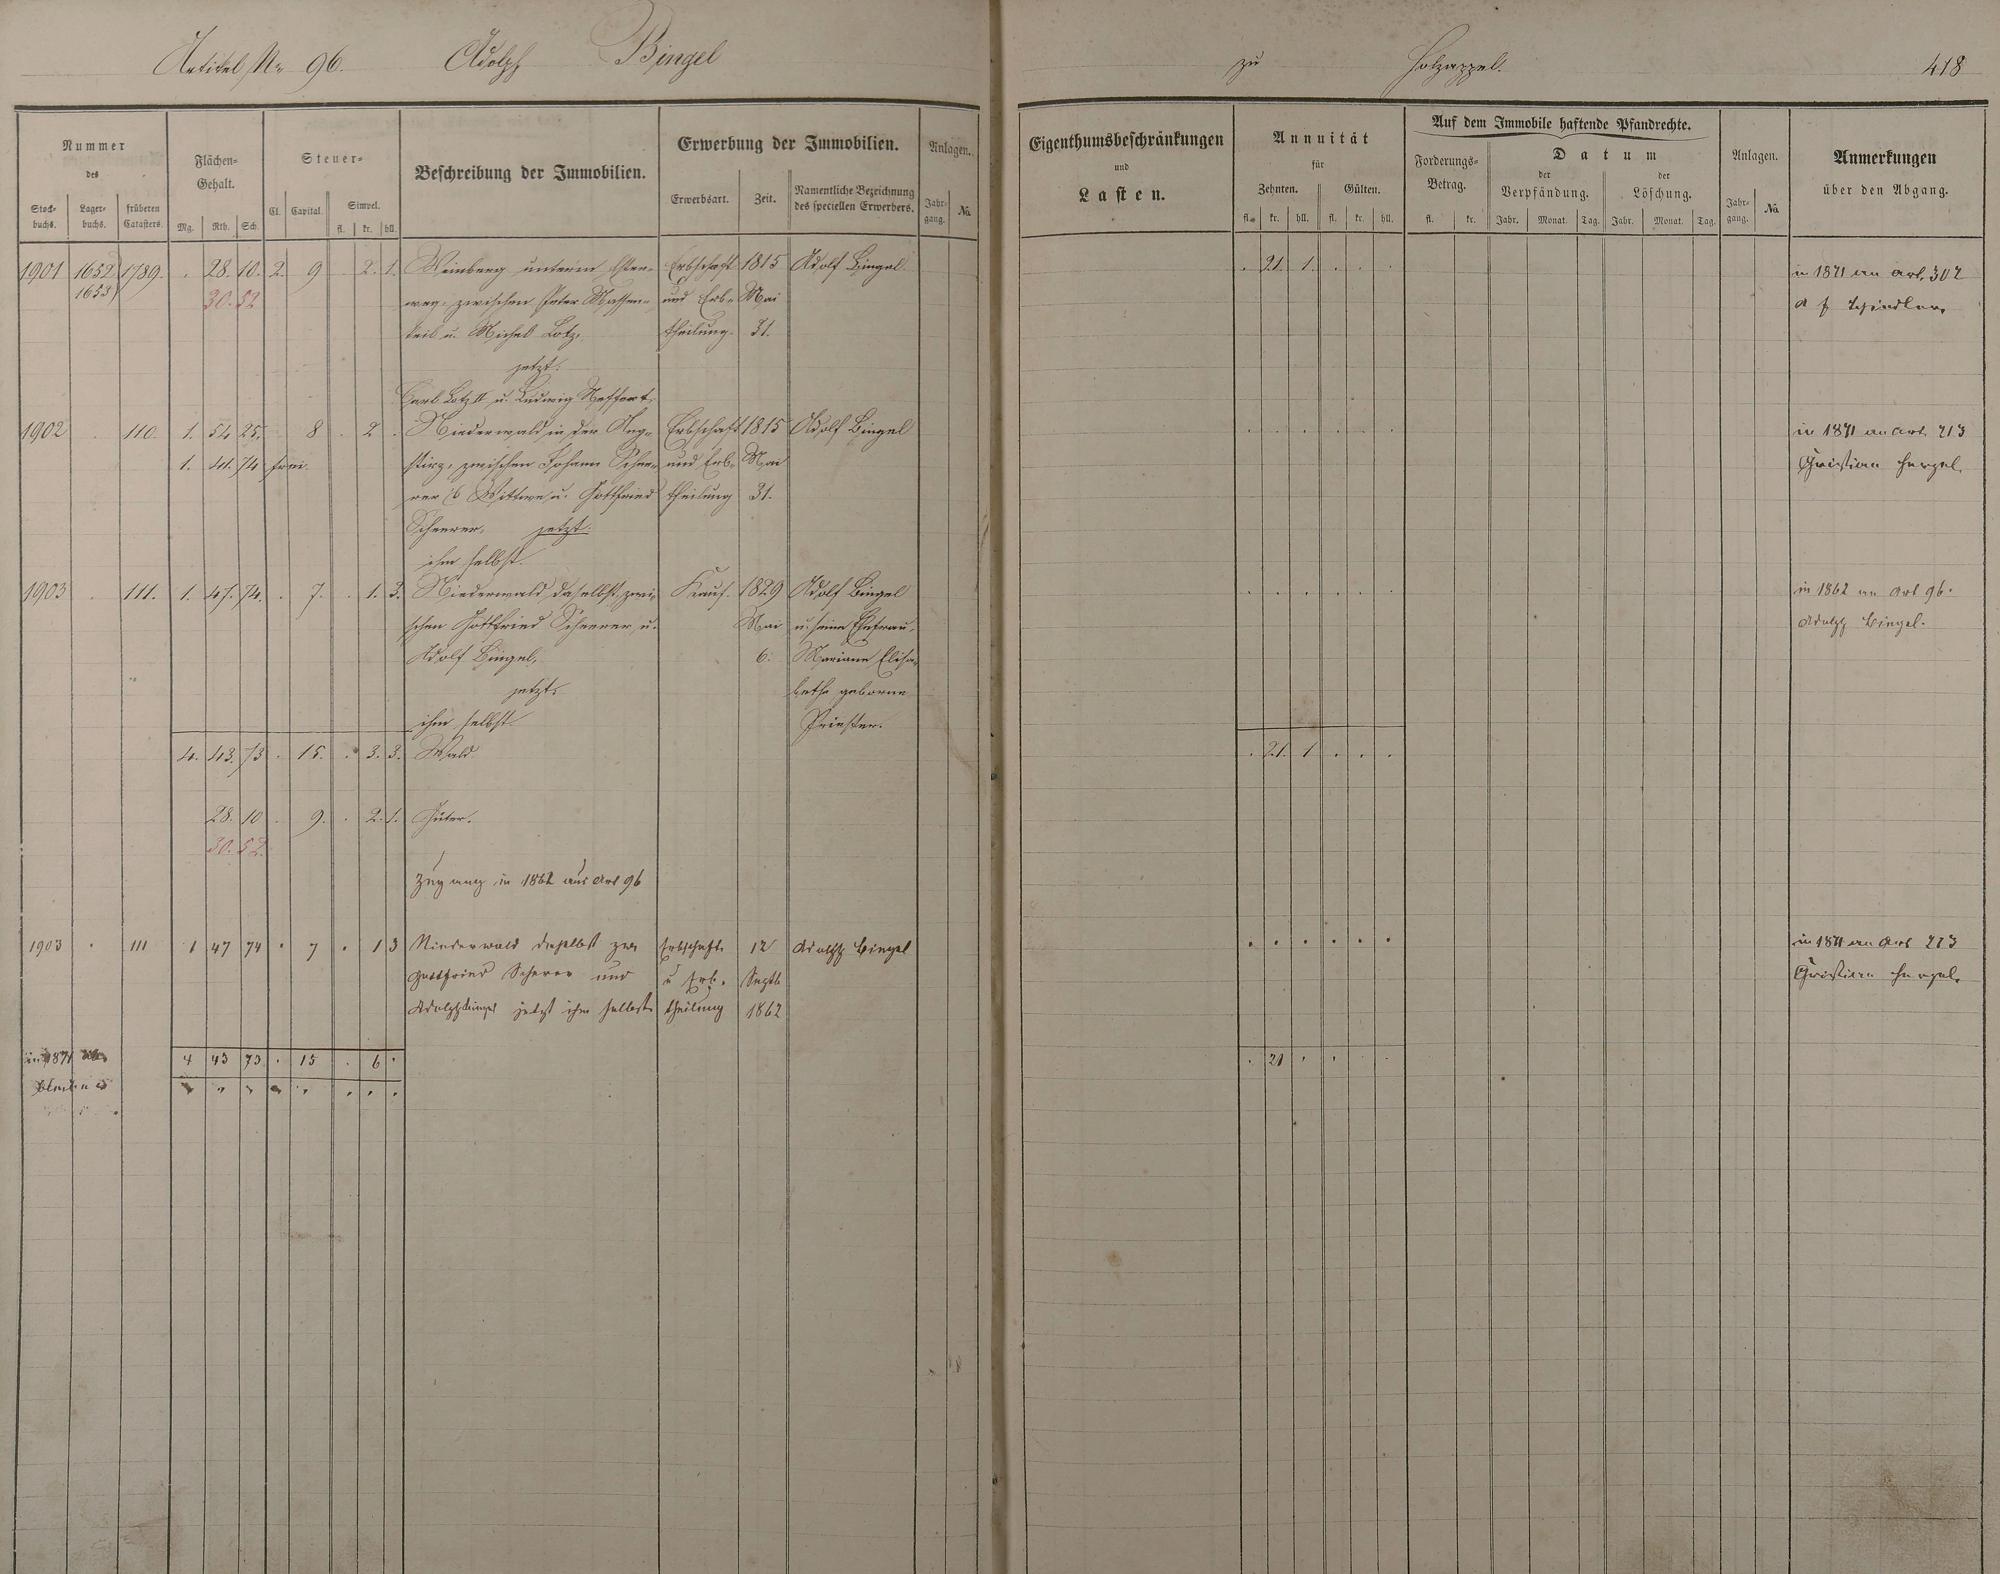 Artikel Nr 96. Adolph Bingel zu Holzappel. 418
Nummer
des
Stock-
buchs.
Lager-
buchs.
früheren
Catasters.
Flächen-
Gehalt.
Mg. Rth. Sch.
Steuer-
Cl. Capital.
Simpel.
fl. kr. hll.
Beschreibung der Immobilien.
Erwerbung der Immobilien.
Erwerbsart. Zeit.
Namentliche Bezeichnung
des speciellen Erwerbers.
Anlagen.
Jahr-
gang.
No
Eigenthumsbeschränkungen
und
Lasten.
Annuität
für
Zehnten. Gülten.
fl. kr. hll. fl. kr. hll.
Auf dem Immobile haftende Pfandrechte.
Forderungs-
Betrag.
fl. kr.
Datum
der
Verpfändung.
der
Löschung.
Jahr. Monat. Tag. Jahr. Monat. Tag.
Anlagen.
Jahr-
gang.
No
Anmerkungen
über den Abgang.
1901 1652 1789. . 28. 10. 2. 9 . 2. 1. Weinberg unterm Erbschaft 1815 Adolf Bingel . 21. 1. . . . in 1871 an art. 302
1653 30. 52 zwischen Peter und Erb- Mai
u. Michel Lotz, theilung. 31.
jetzt:
Carl Lotz II u. Ludwig
1902 . 110. 1. 54 25. 8 . 2 . Niederwald in der Erbschaft 1815 Adolf Bingel . . . . . . in 1871 an Art. 213
1. 41. 74 frei. zwischen Johann Schee- und Erb- Mai Christian Hergel.
rer's Wittwe u. Gottfried theilung 31.
Scheerer, jetzt:
ihm selbst.
1903 . 111. 1. 47. 74. . 7. . 1. 3. Niederwald, daselbst, zwi- Kauf. 1829 Adolf Bingel . . . . . . in 1862 an Art 96.
schen Gottfried Scheerer u. Mai u. seine Ehefrau, Adolph Bingel.
Adolf Bingel, 6. Mariane Elisa-
jetzt: betha geborne
ihm selbst. Priester.
4. 43. 73 . 15. . 3. 3. Wald. . 21. 1 . . .
28. 10 . 9. . 2. 1. Güter.
30. 52.
Zugang in 1862 aus Art 96
1903 . 111 1 47 74 . 7 . 1 3 Niederwald daselbst zw. Erbschaft 12 Adolph Bingel . . . . . . in 1871 an Art 213
Gottfried Scherer und u Erb- Septb Christian Hergel.
Adolph Bingel jetzt ihm selbst theilung 1862
in 1871 4 43 73 . 15 . 6 . . 21 . . . .